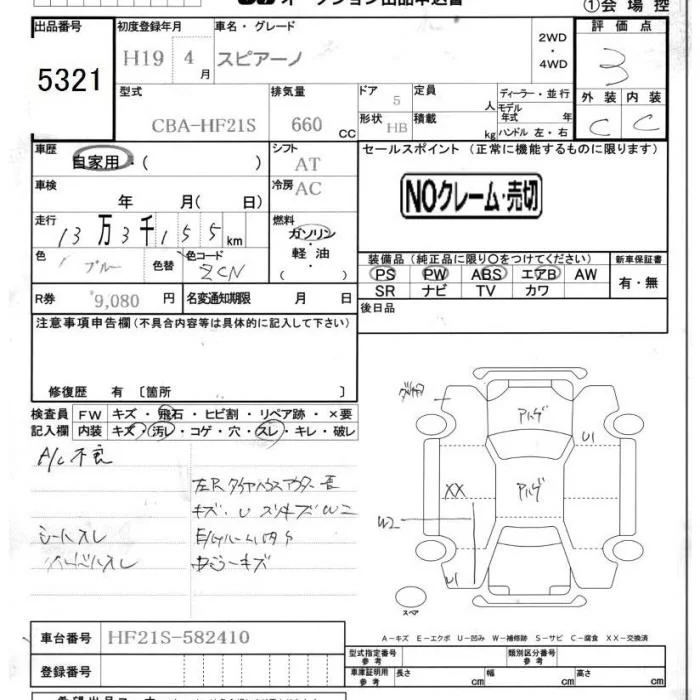 オークション出品申込書
①会場控
出品番号
5321
初度登録年月
H19 4月
車名・グレード
スピアーノ
2WD
・
4WD
評価点
3
外装 内装
C C
型式
CBA-HF21S
排気量
660 CC
ドア 5
形状 HB
定員 人
積載 kg
ディーラー・並行
モデル年式 年
ハンドル 左・右
車歴
自家用・( )
シフト
AT
車検
年 月( 日)
冷房
AC
走行
13万3千155km
燃料
ガソリン
・
軽油
( )
色
ブルー
色替
色コード
ZCN
R券 9,080 円
名変通知期限 月 日
セールスポイント(正常に機能するものに限ります)
NOクレーム・売切
装備品(純正品に限り○をつけてください)
PS PW ABS エアB AW
SR ナビ TV カワ
新車保証書
有・無
後日品
注意事項申告欄(不具合内容等は具体的に記入して下さい)
修復歴 有 〔箇所 〕
検査員記入欄
FW キズ・飛石・ヒビ割・リペア跡・×要
内装 キズ・汚レ・コゲ・穴・スレ・キレ・破レ
A/C不良
キズ・U
シートスレ
E/gルーム内S
アルゲ
アルゲ
U1
XX
W2
U1
スペア
A−キズ E−エクボ U−凹み W−補修跡 S−サビ C−腐食 XX−交換済
車台番号 HF21S-582410
登録番号
型式指定番号 参考
類別区分番号 参考
車庫証明用 参考
長さ cm 幅 cm 高さ cm
希望出品コーナー